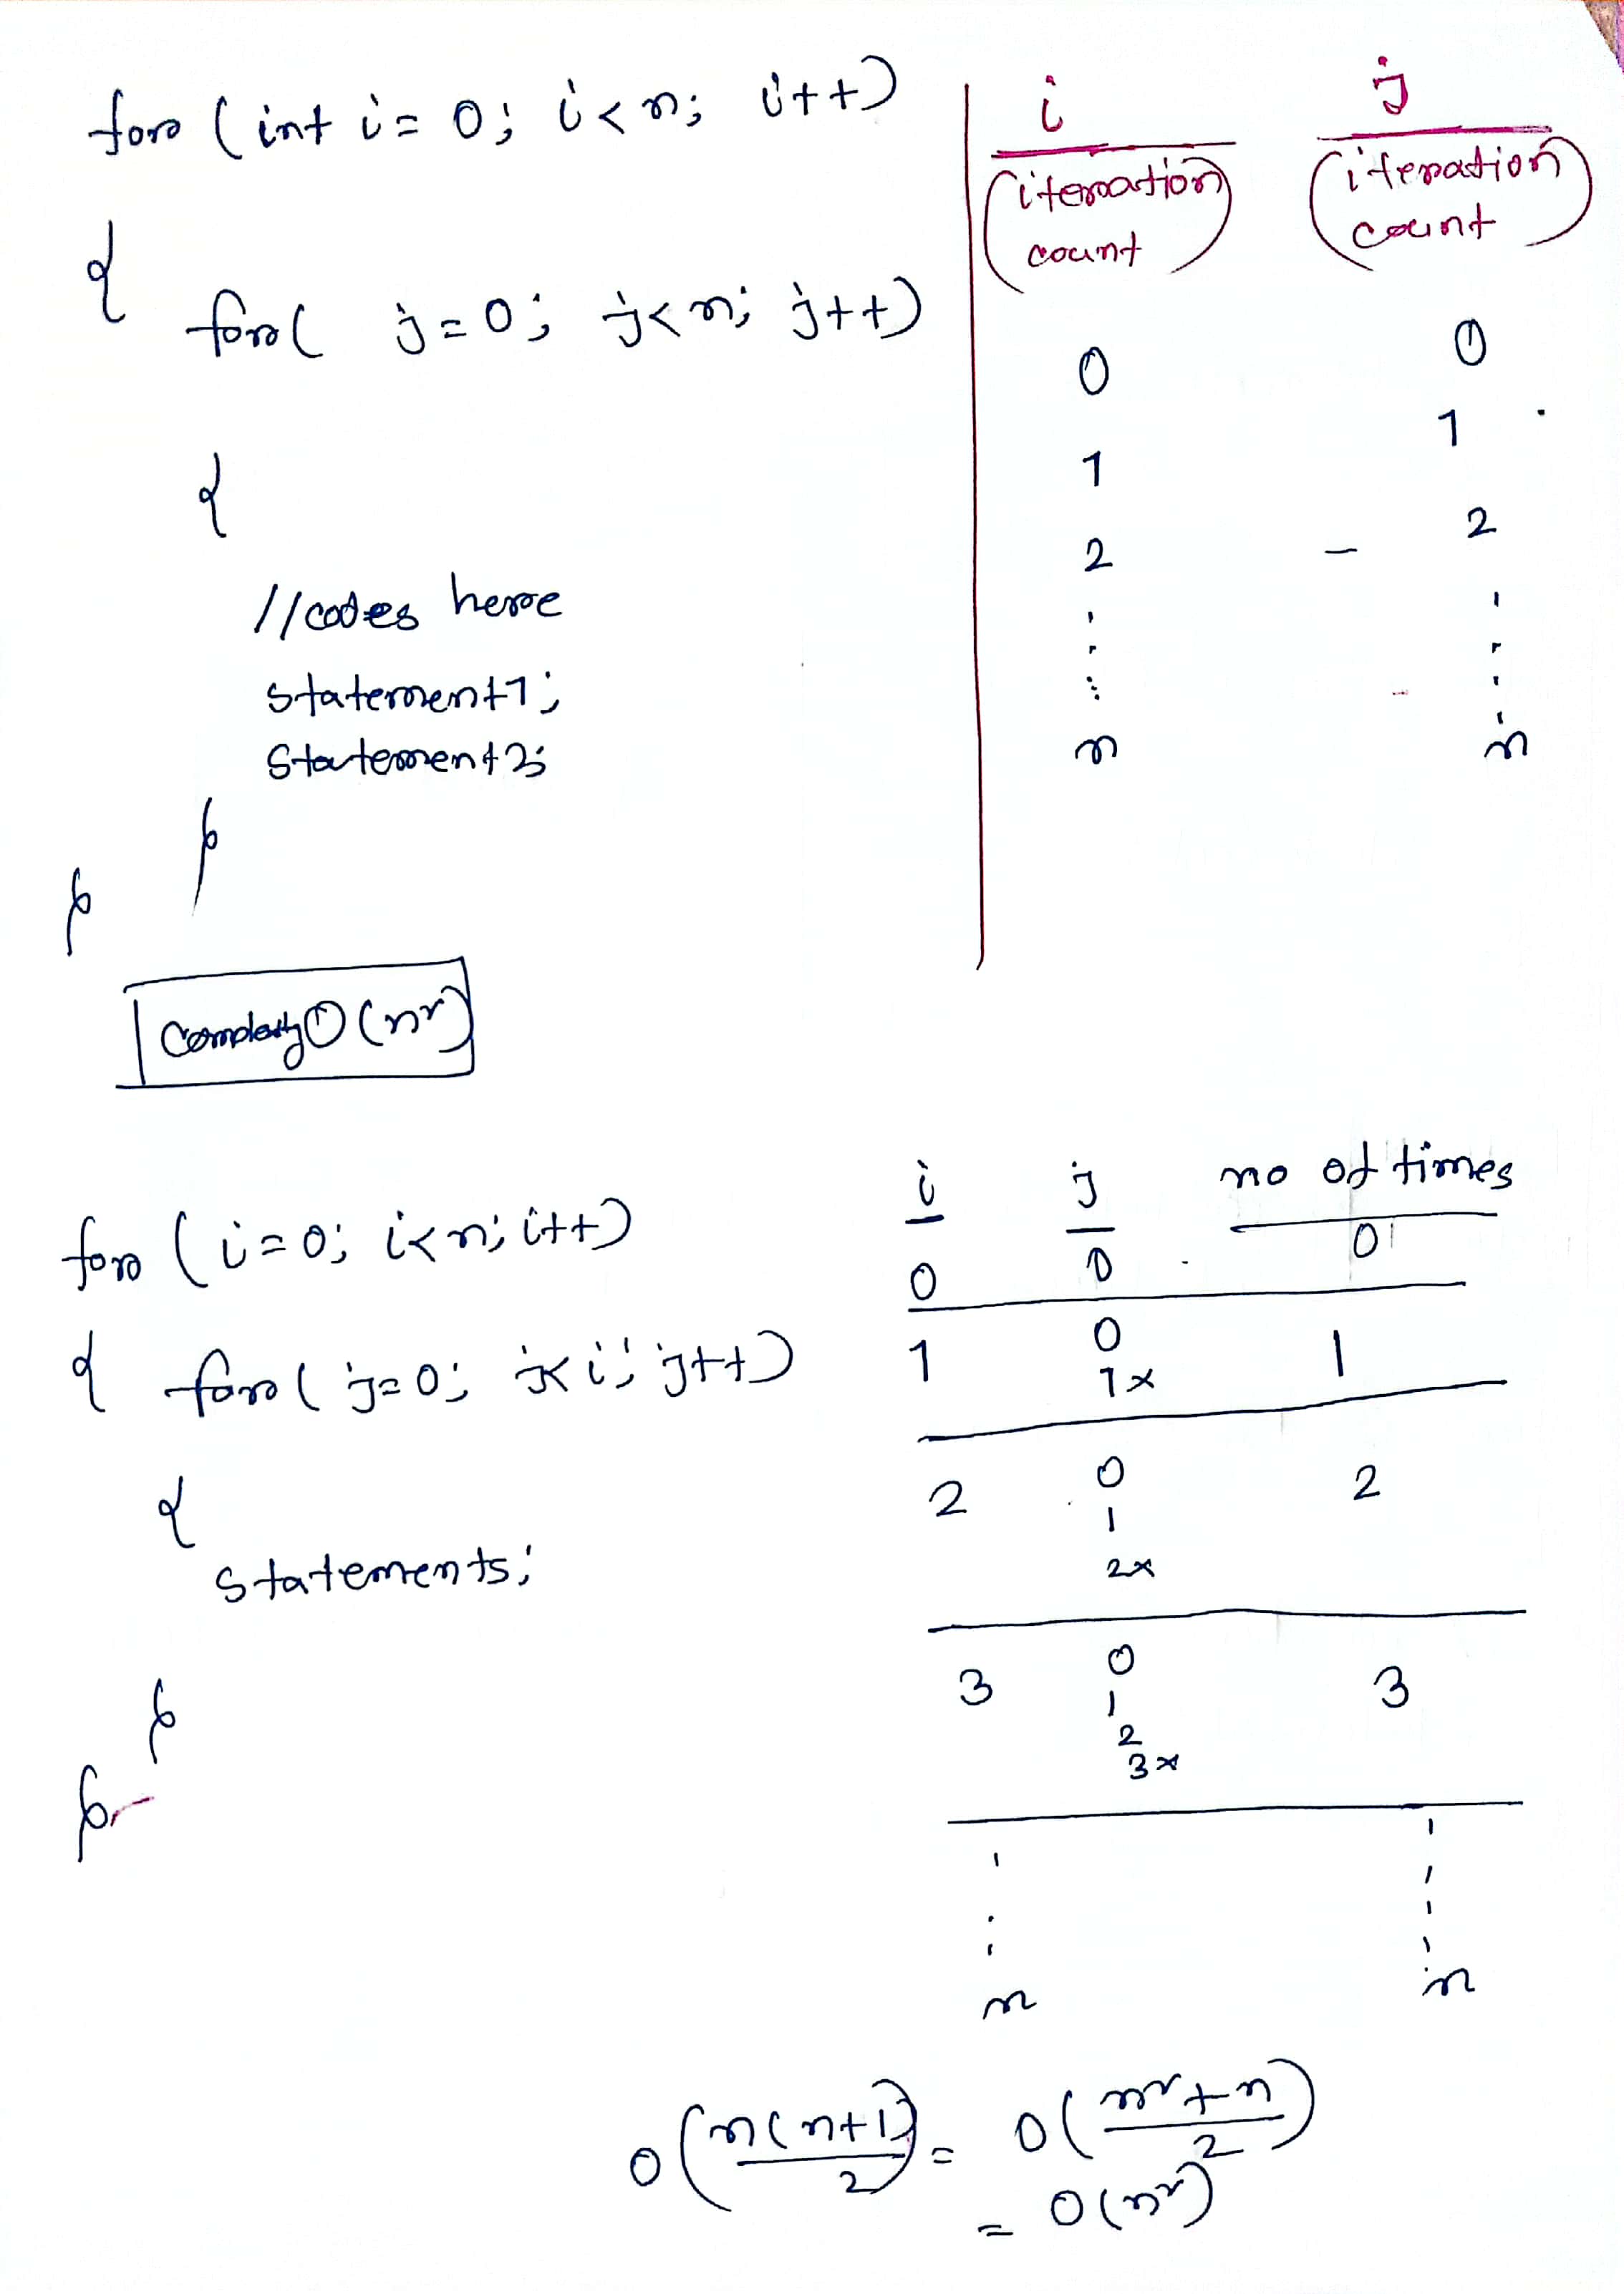 for (int i = 0; i < n; i++)
{
for( j = 0; j < n; j++)
{
//codes here
statement1;
Statement2;
}
}
i j
(iteration count) (iteration count)
0 0
1 1
2 - 2
. .
. .
: .
n n
Complexity O(n²)
for (i = 0; i < n; i++)
{ for( j = 0; j < i; j++)
{
statements;
}
}
i j no of times
0 0 0
1 0 1
1x
2 0 2
1
2x
3 0 3
1
2
3x
. .
. .
. .
n n
O(n(n+1)/2) = O((n²+n)/2)
= O(n²)